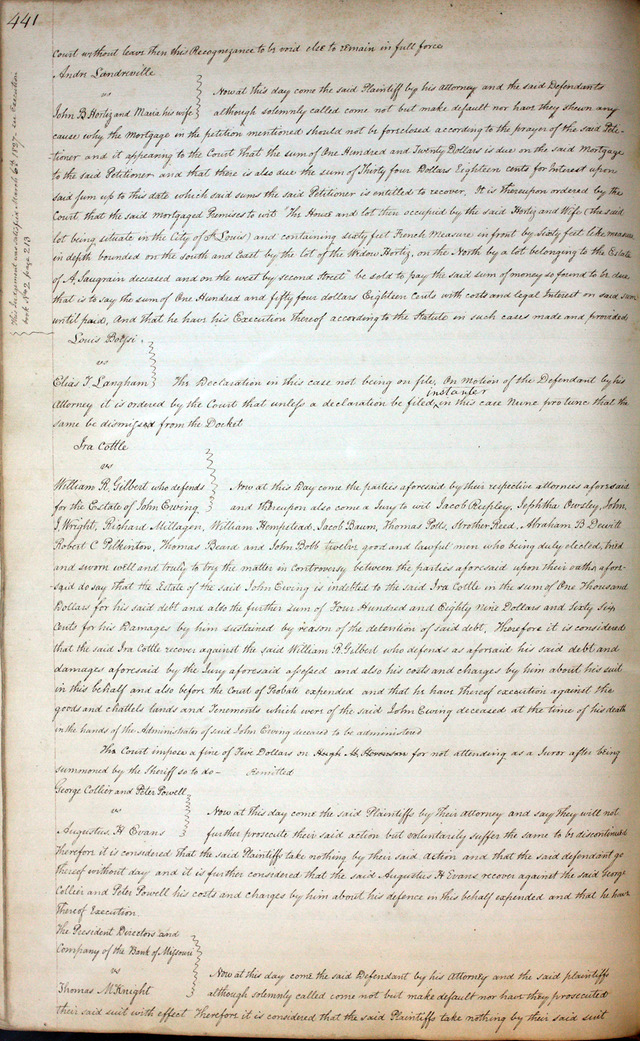 441
Court without leave then this Recognizance to be void else to remain in full force
Andre Landreville
vs
John B Hortez and Maria his wife
Now at this day come the said Plaintiff by his Attorney and the said Defendants
although solemnly called come not but make default nor have they shewn any
cause why the Mortgage in the petition mentioned should not be foreclosed according to the prayer of the said Peti-
tioner and it appearing to the Court that the sum of One Hundred and Twenty Dollars is due on the said Mortgage
to the said Petitioner and that there is also due the sum of Thirty four Dollars Eighteen cents for Interest upon
said sum up to this date which said sums the said Petitioner is entitled to recover. It is thereupon ordered by the
Court that the said Mortgaged Premises to wit The House and lot then occupied by the said Hortiz and Wife (the said
lot being situate in the City of St Louis) and containing sixty feet French Measure in front by Sixty feet like measure
in depth bounded on the south and East by the lot of the Widow Hortiz, on the North by a lot belonging to the Estate
of A, Saugrain deceased and on the west by second Street" be sold to pay the said sum of money so found to be due
that is to say the sum of One Hundred and fifty four dollars Eighteen Cents with costs and legal Interest on said sum
until paid, And that he have his Execution thereof according to the Statute in such cases made and provided
This Judgement was satisfied March 6th 1827 see Execution
book No 2 page 213
Louis
vs
Elias T. Langham
The Declaration in this case not being on file, On motion of the Defendant by his
Attorney it is ordered by the Court that unless a declaration be filed instanter in this case Nunc pro tunc that the
same be dismissed from the Docket
Ira Cottle
vs
William R. Gilbert who defends
for the Estate of John Ewing
Now at this Day come the parties aforesaid by their respective attornies aforesaid
and thereupon also come a Jury to wit Jacob Neppley, Jephtha Owsley, John
J Wright, Richard Millagen, William Hempstead, Jacob Baum, Thomas Potts, Strother Reed, Abraham B Dewitt
Robert C Pelkinton, Thomas Beard and John Bobb twelve good and lawful men who being duly elected, tried
and sworn well and truly to try the matter in controversy between the parties aforesaid upon their oaths afore-
said do say that the Estate of the said John Ewing is indebted to the said Ira Cottle in the sum of One Thousand
Dollars for his said debt and also the further sum of Four Hundred and Eighty Nine Dollars and Sixty Six
Cents for his Damages by him sustained by reason of the detention of said debt. Therefore it is considered
that the said Ira Cottle recover against the said William R. Gilbert who defends as aforsaid his said debt and
damages aforesaid by the Jury aforesaid assessed and also his costs and charges by him about his suit
in this behalf and also before the Court of Probate expended and that he have thereof execution against the
goods and chattels lands and Tenements which were of the said John Ewing deceased at the time of his death
in the hands of the Administrator of said John Ewing deceased to be administered
The Court impose a fine of Five Dollars on Hugh for not attending as a Juror after being
summoned by the Sheriff so to do - Remitted
George Collier and Peter Powell
vs
Augustus, H Evans
Now at this day come the said Plaintiffs by their attorney and say they will not
further prosecute their said action but voluntarily suffer the same to be discontinued
Therefore it is considered that the said Plaintiffs take nothing by their said Action and that the said defendant go
thereof without day and it is further considered that the said Augustus H Evans recover against the said George
Collier and Peter Powell his costs and charges by him about his defence in this behalf expended and that he have
Thereof Execution.
The President Directors and
Company of the Bank of Missouri
vs
Thomas McKnight
Now at this day come the said Defendant by his Attorney and the said plaintiffs
although solemnly called come not but make default nor have they prosecuted
their said suit with effect Therefore it is considered that the said Plaintiffs take nothing by their said suit